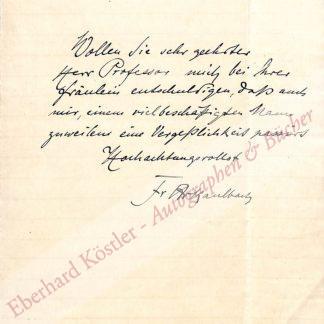 Wollen Sie sehr geehrter
Herr Professor mich bei Ihrer
Fräulein entschuldigen, daß auch
mir, einem vielbeschäftigten Mann
zuweilen eine Vergeßlichkeit
Hochachtungsvollst
Fr Kaulbach
Eberhard Köstler - Autographen & Bücher